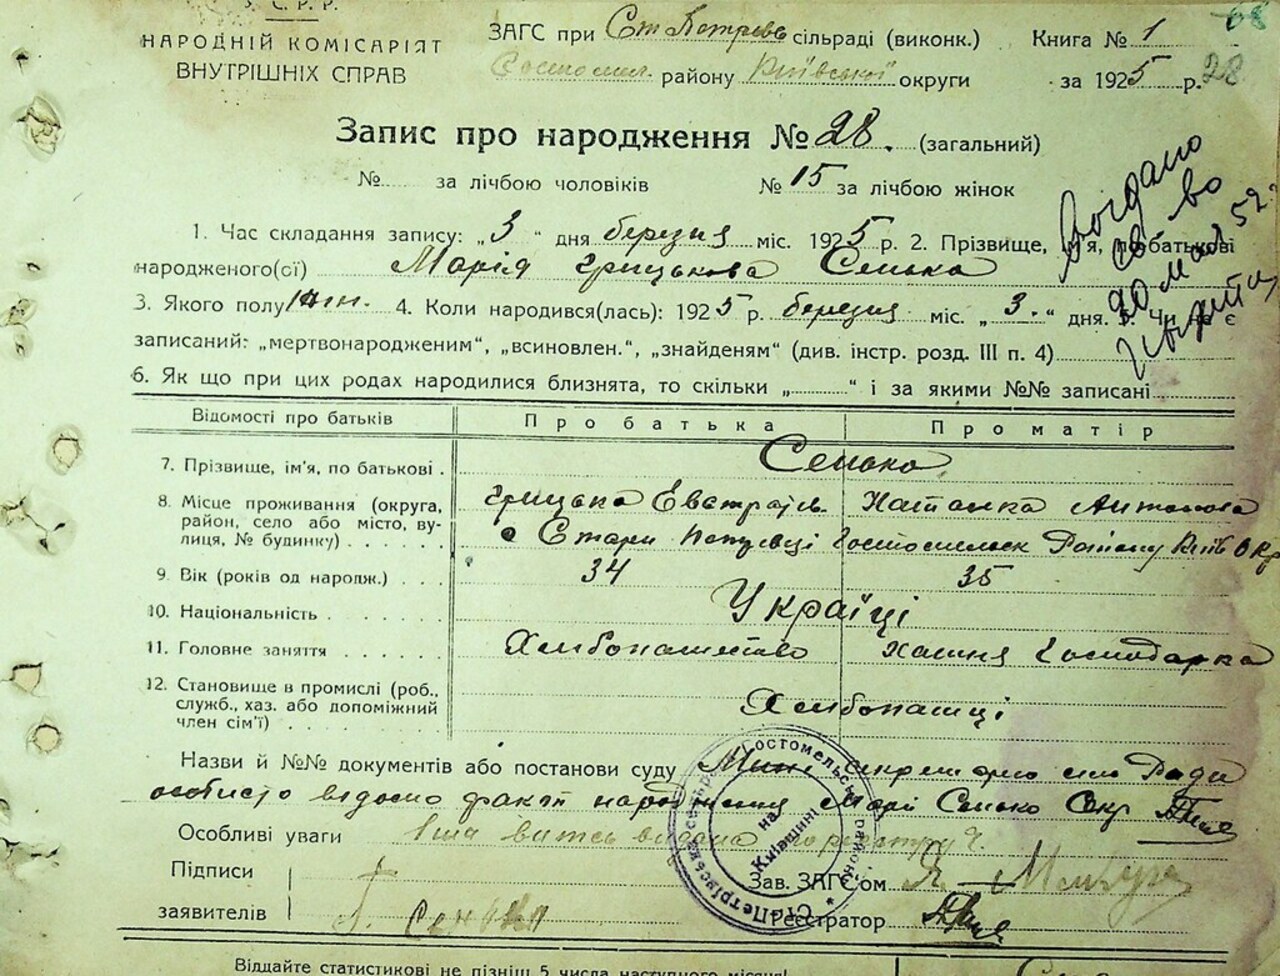 У. С. Р. Р.
НАРОДНІЙ КОМІСАРІЯТ
ВНУТРІШНІХ СПРАВ
ЗАГС при Ст Петрівс сільраді (виконк.) Книга № 1
Гостомел. району Київської округи за 1925 р. 28
Запис про народження № 28. (загальний)
№ за лічбою чоловіків № 15 за лічбою жінок
1. Час складання запису: „3“ дня березня міс. 1925 р. 2. Прізвище, ім'я, по батькові
народженого(ої) Марія Грицькова Сенько
3. Якого полу жін. 4. Коли народився(лась): 1925 р. березня міс. „3.“ дня. 5. Чи не є
записаний: „мертвонародженим“, „всиновлен.“, „знайденям“ (див. інстр. розд. III п. 4)
6. Як що при цих родах народилися близнята, то скільки „ “ і за якими №№ записані
Відомості про батьків Про батька Про матір
7. Прізвище, ім'я, по батькові . Сенько
8. Місце проживання (округа, Грицько Евстратів. Наталка Антонова
район, село або місто, ву-
лиця, № будинку) с Стари Петрівці Гостомельск Району Київ Окр
9. Вік (років од народж.) 34 35
10. Національність Україці
11. Головне заняття Хлібопашество Хатня Господарка
12. Становище в промислі (роб.,
служб., хаз. або допоміжний Хлібопашці
член сім'ї)
Назви й №№ документів або постанови суду Мині секретарю сіль Ради
особисто відомо факт народження Марії Сенько Секр
Особливі уваги
Підписи Зав. ЗАГС'ом
заявителів Сенько Реєстратор
Гостомельськ район
на Київщині
Віддайте статистикові не пізніш 5 числа наступного місяця!